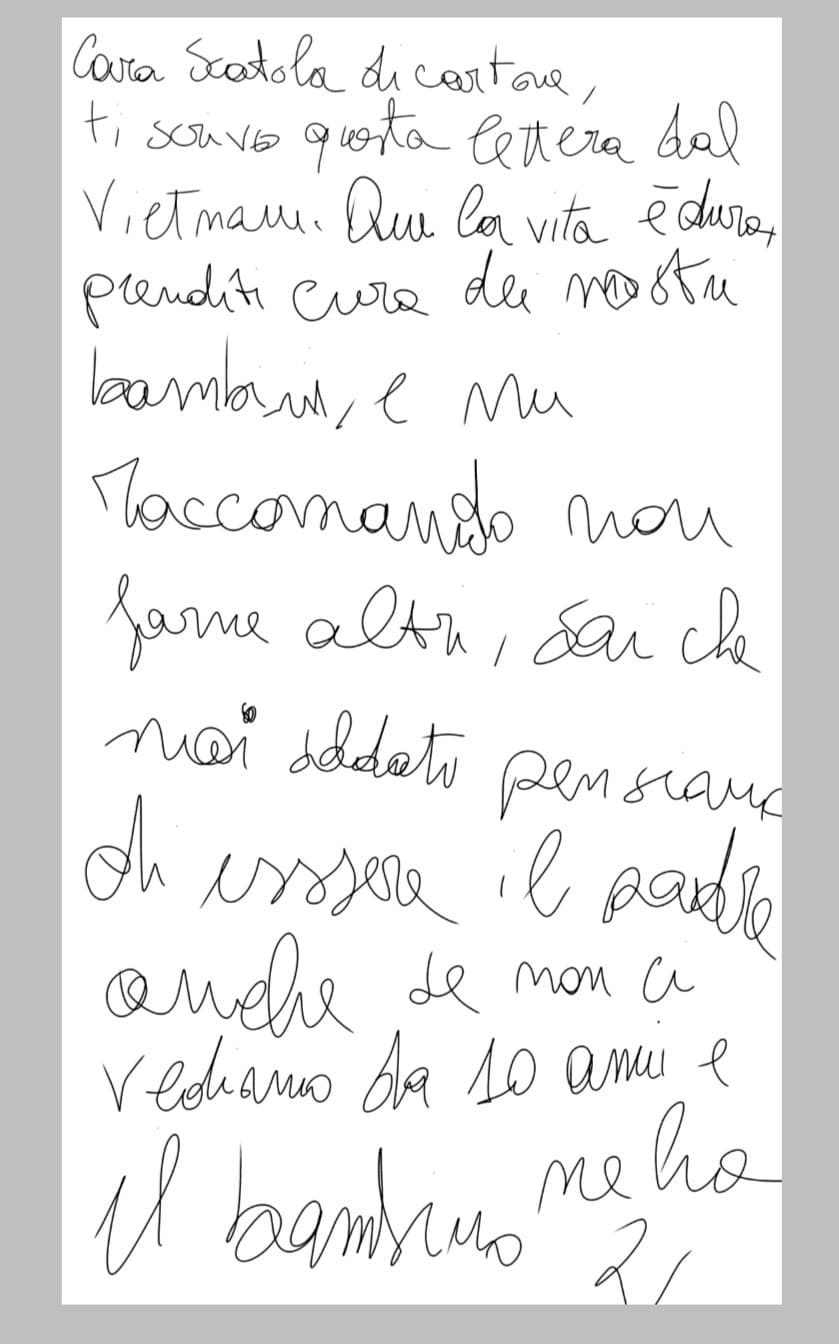 Cara Scatola di cartone,
ti scrivo questa lettera dal
Vietnam. Qui la vita è dura,
prenditi cura dei nostri
bambini, e mi
raccomando non
farne altri, sai che
noi soldati pensiamo
di essere il padre
anche se non ci
vediamo da 10 anni e
il bambino ne ha
2,